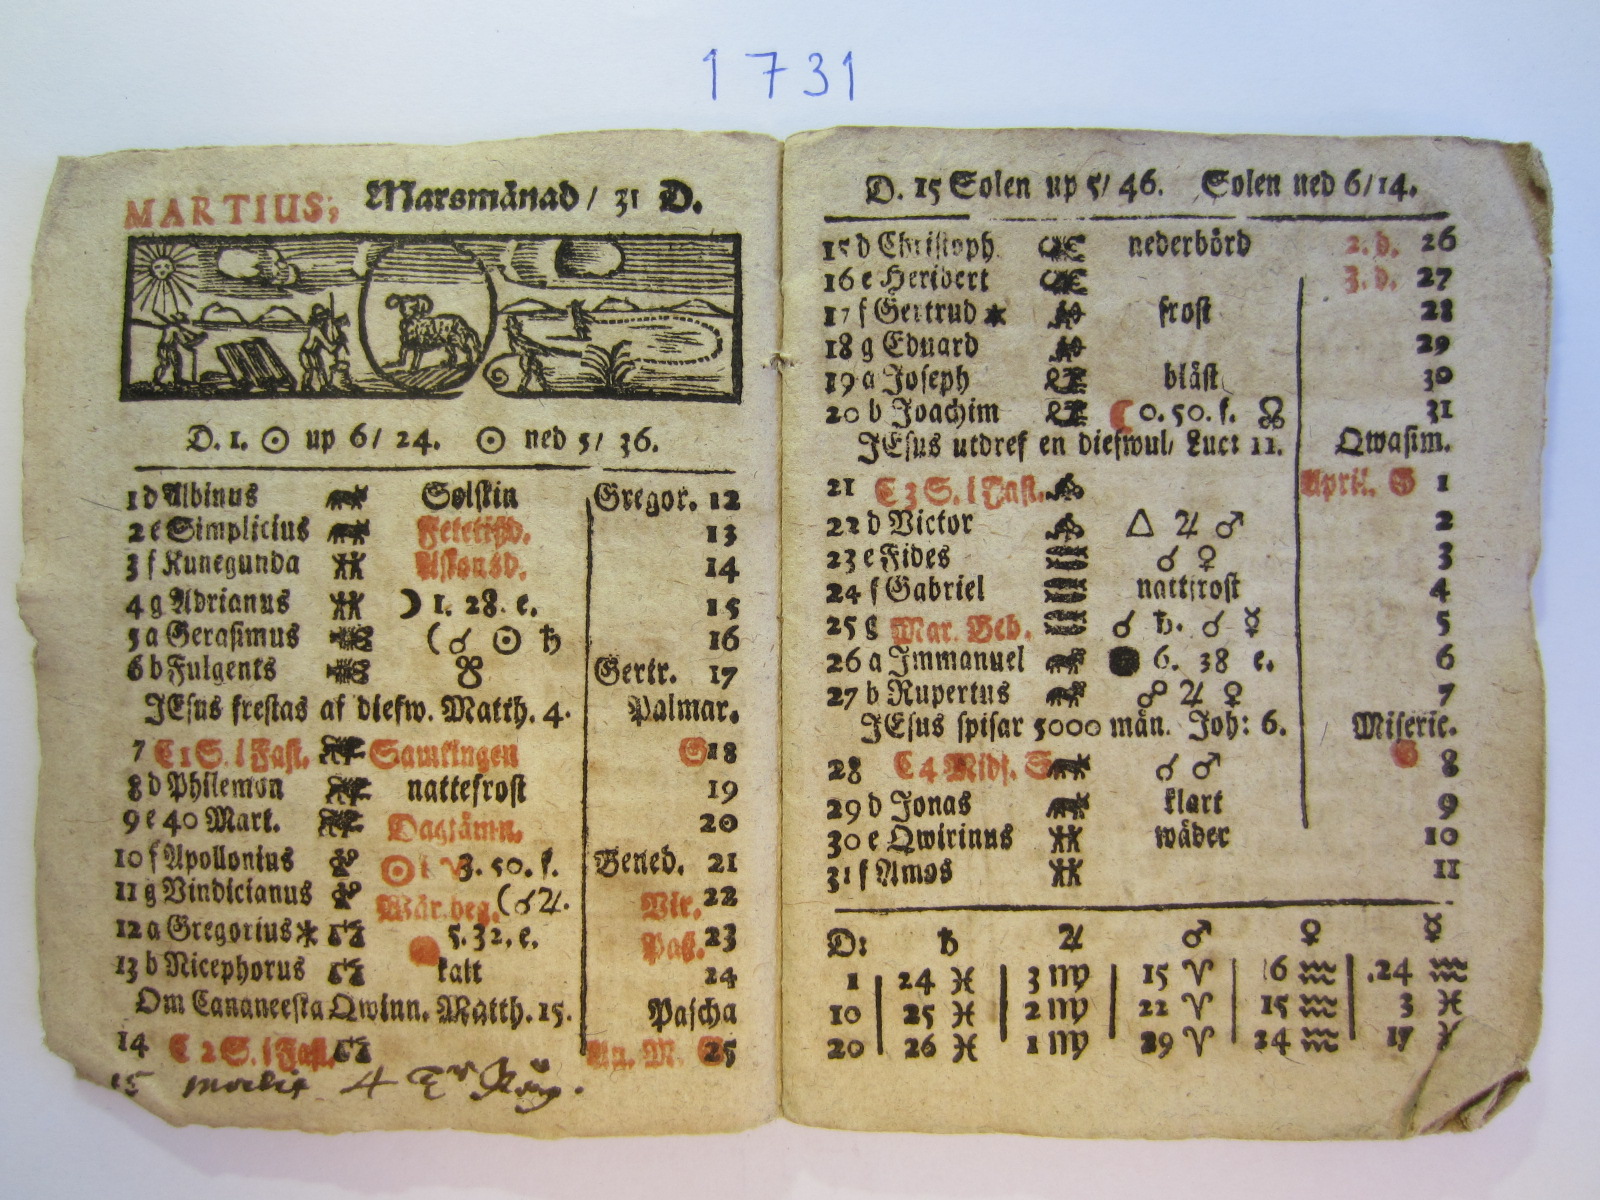 1731
MARTIUS; Marsmånad / 31 D.
D. 1. ☉ up 6/ 24. ☉ ned 5/ 36.
1 d Albinus Solskin Gregor. 12
2 e Simplicius 13
3 f Kunegunda 14
4 g Adrianus ☽ 1. 28. e. 15
5 a Gerasimus ( ☌ ☉ ♄ 16
6 b Fulgents ☋ Gertr. 17
JEsus frestas af diefw. Matth. 4. Palmar.
7 C 1 S. i Fast. Samlingen G 18
8 d Philemon nattefrost 19
9 e 40 Mart. Dagjämn. 20
10 f Apollonius ☉ i ♈ 3. 50. f. Bened. 21
11 g Vindicianus Wår.beg. ( ☌ ♃. Vir. 22
12 a Gregorius * 5. 32. e. Pas. 23
13 b Nicephorus kalt 24
Om Cananeeska Qwinn. Matth. 15. Pascha
14 C 2 S. i Fast. An. M. G 25
15
D. 15 Solen up 5/ 46. Solen ned 6/14.
15 d Christoph nederbörd 2. d. 26
16 e Heribert 3. d. 27
17 f Gertrud * frost 28
18 g Eduard 29
19 a Joseph blåst 30
20 b Joachim ☾ 0. 50. f. ☊ 31
JEsus utdref en diefwul/ Luc: 11. Qwasim.
21 C 3 S. i Fast. April. G 1
22 d Victor △ ♃ ♂ 2
23 e Fides ☌ ♀ 3
24 f Gabriel nattfrost 4
25 g Mar. Beb. ☌ ♄. ☌ ☿ 5
26 a Immanuel ● 6. 38 e. 6
27 b Rupertus ☍ ♃ ♀ 7
JEsus spisar 5000 män. Joh: 6. Miseric.
28 C 4 Midf. S G 8
☌ ♂
29 d Jonas klart 9
30 e Qwirinus wäder 10
31 f Amos 11
D: ♄ ♃ ♂ ♀ ☿
1 24 ♓ 3 ♍ 15 ♈ 6 ♒ 24 ♒
10 25 ♓ 2 ♍ 22 ♈ 15 ♒ 3 ♓
20 26 ♓ 1 ♍ 29 ♈ 24 ♒ 17